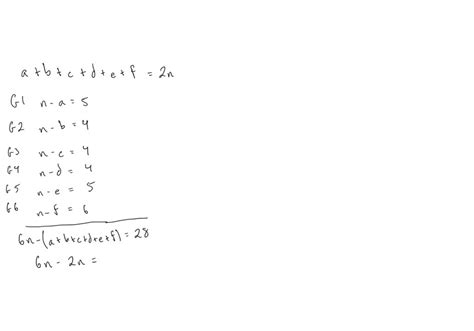 a+b+c+d+e+f = 2n
G1 n-a = 5
G2 n-b = 4
G3 n-c = 4
G4 n-d = 4
G5 n-e = 5
G6 n-f = 6
6n-(a+b+c+d+e+f) = 28
6n - 2n =